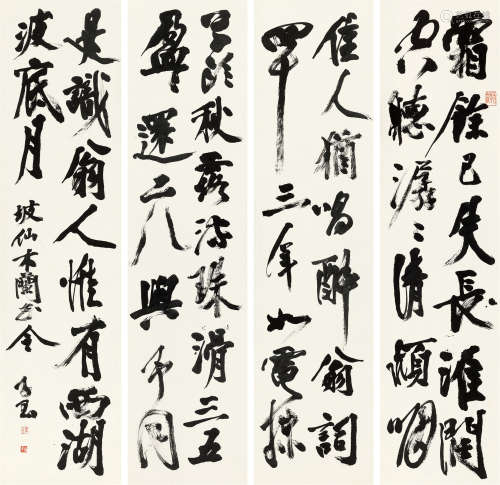 霜餘已失長淮闊
空聽潺〻清潁咽
佳人猶唱醉翁詞
四十三年如電抹
草頭秋露流珠滑三五
盈〻還二八與予同
是識翁人惟有西湖
波底月
坡仙木蘭花令